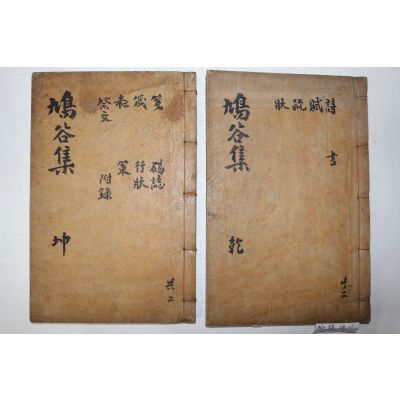 詩 書
賦
疏
狀
鳩谷集 乾
共二
箋 碣誌
箴 行狀
表 策
祭文 附錄
鳩谷集 坤
共二